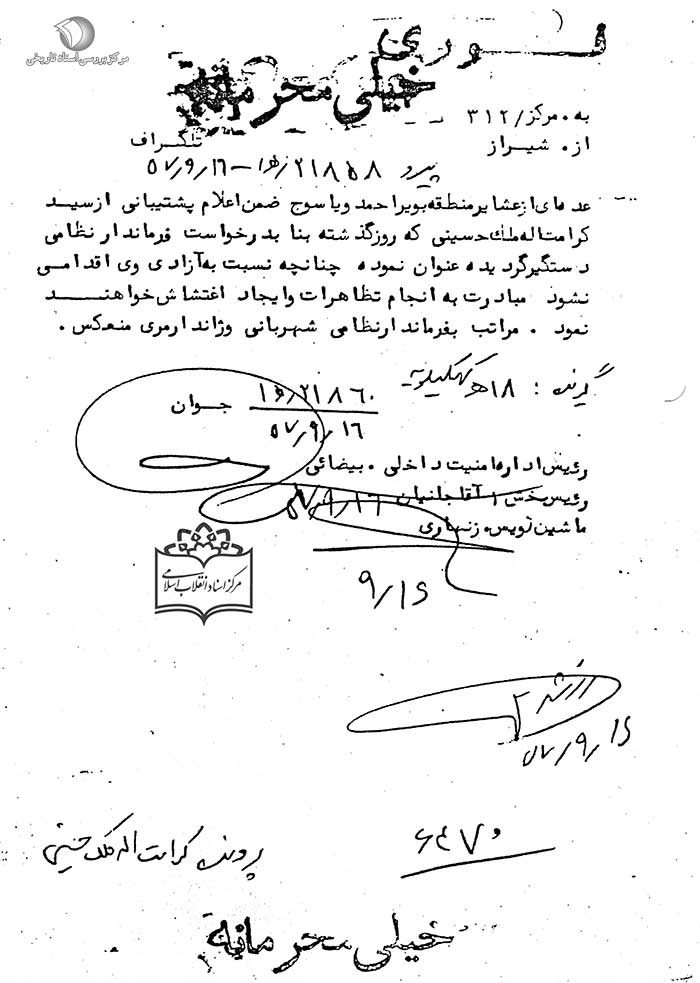 مرکز بررسی اسناد تاریخی
فــوری
خیلی محرمانه
به . مرکز / ۳۱۲
از . شیراز
تلگراف
پیرو ۱۵/۲۱۸۵۸ - ۵۷/۹/۱۶
عده‌ای از عشایر منطقه بویراحمد و یاسوج ضمن اعلام پشتیبانی از سید
کرامت‌اله ملک حسینی که روز گذشته بنا بدرخواست فرماندار نظامی
دستگیر گردیده عنوان نموده چنانچه نسبت به آزادی وی اقدامی
نشود مبادرت به انجام تظاهرات و ایجاد اغتشاش خواهند
نمود . مراتب بفرماندار نظامی شهربانی و ژاندارمری منعکس .
گیرنده : ۱۸ ه‍ کهگیلویه
۱۵/۲۱۸۶۰ جوان
۵۷/۹/۱۶
رئیس اداره امنیت داخلی . بیضائی
رئیس بخش ۱ آقاجانیان
ماشین نویس . زنهاری
مرکز اسناد انقلاب اسلامی
۹/۱۶
۵۷/۹/۱۶
۶۴۷۰
پرونده کرامت اله ملک حسینی
خیلی محرمانه